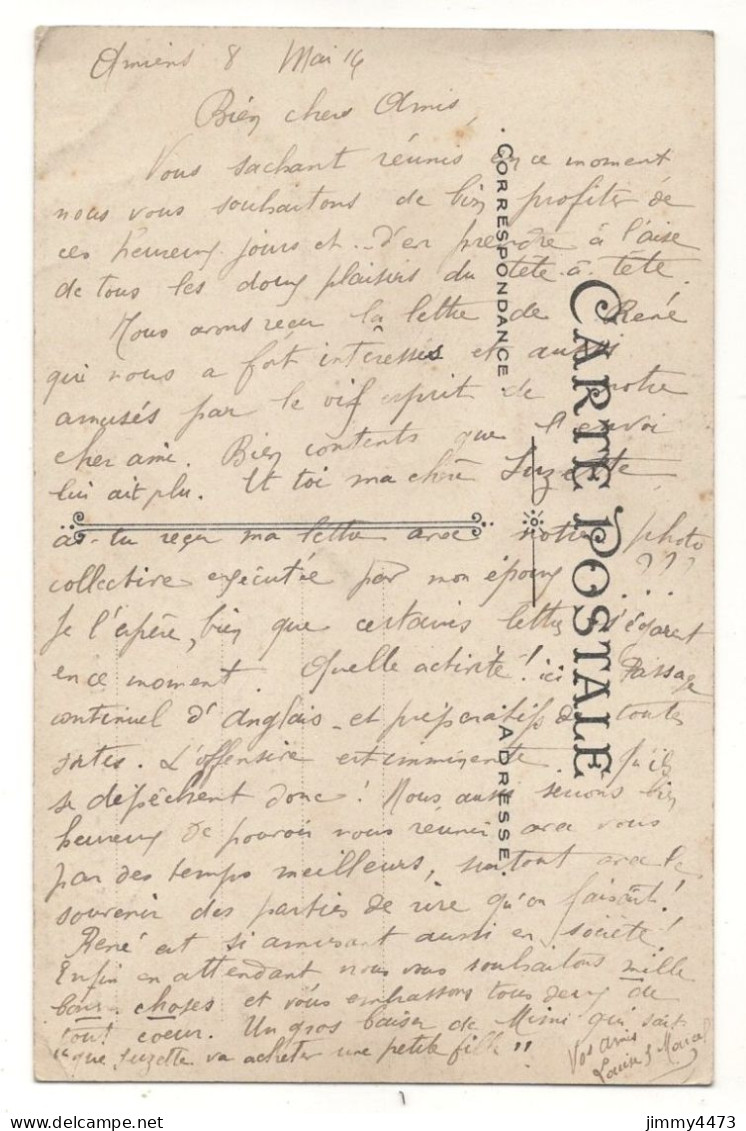 Amiens 8 Mai 16
Bien chers Amis,
Vous sachant réunis en ce moment
nous vous souhaitons de bien profiter de
ces heureux jours et d'en prendre à l'aise
de tous les doux plaisirs du tête-à-tête.
Nous avons reçu la lettre de René
qui nous a fort intéressés et aussi
amusés par le vif esprit de notre
cher ami. Bien contents que l'envoi
lui ait plu. Et toi ma chère Suzette
as-tu reçu ma lettre avec notre photo
collective exécutée par mon époux ???
Je l'espère, bien que certaines lettres s'égarent
en ce moment. Quelle activité ! ici Passage
continuel d'Anglais et préparatifs de toutes
sortes. L'offensive est imminente. Qu'ils
se dépêchent donc ! Nous aussi serions bien
heureux de pouvoir nous réunir avec vous
par des temps meilleurs, surtout avec le
souvenir des parties de rire qu'on faisait !
René est si amusant aussi en société !
Enfin en attendant nous vous souhaitons mille
bonnes choses et vous embrassons tous deux de
tout coeur. Un gros baiser de Mimi qui sait
"que Suzette va acheter une petite fille"
Vos amis
Louise & Marcel
CORRESPONDANCE
CARTE POSTALE
ADRESSE
delcampe.net
jimmy4473